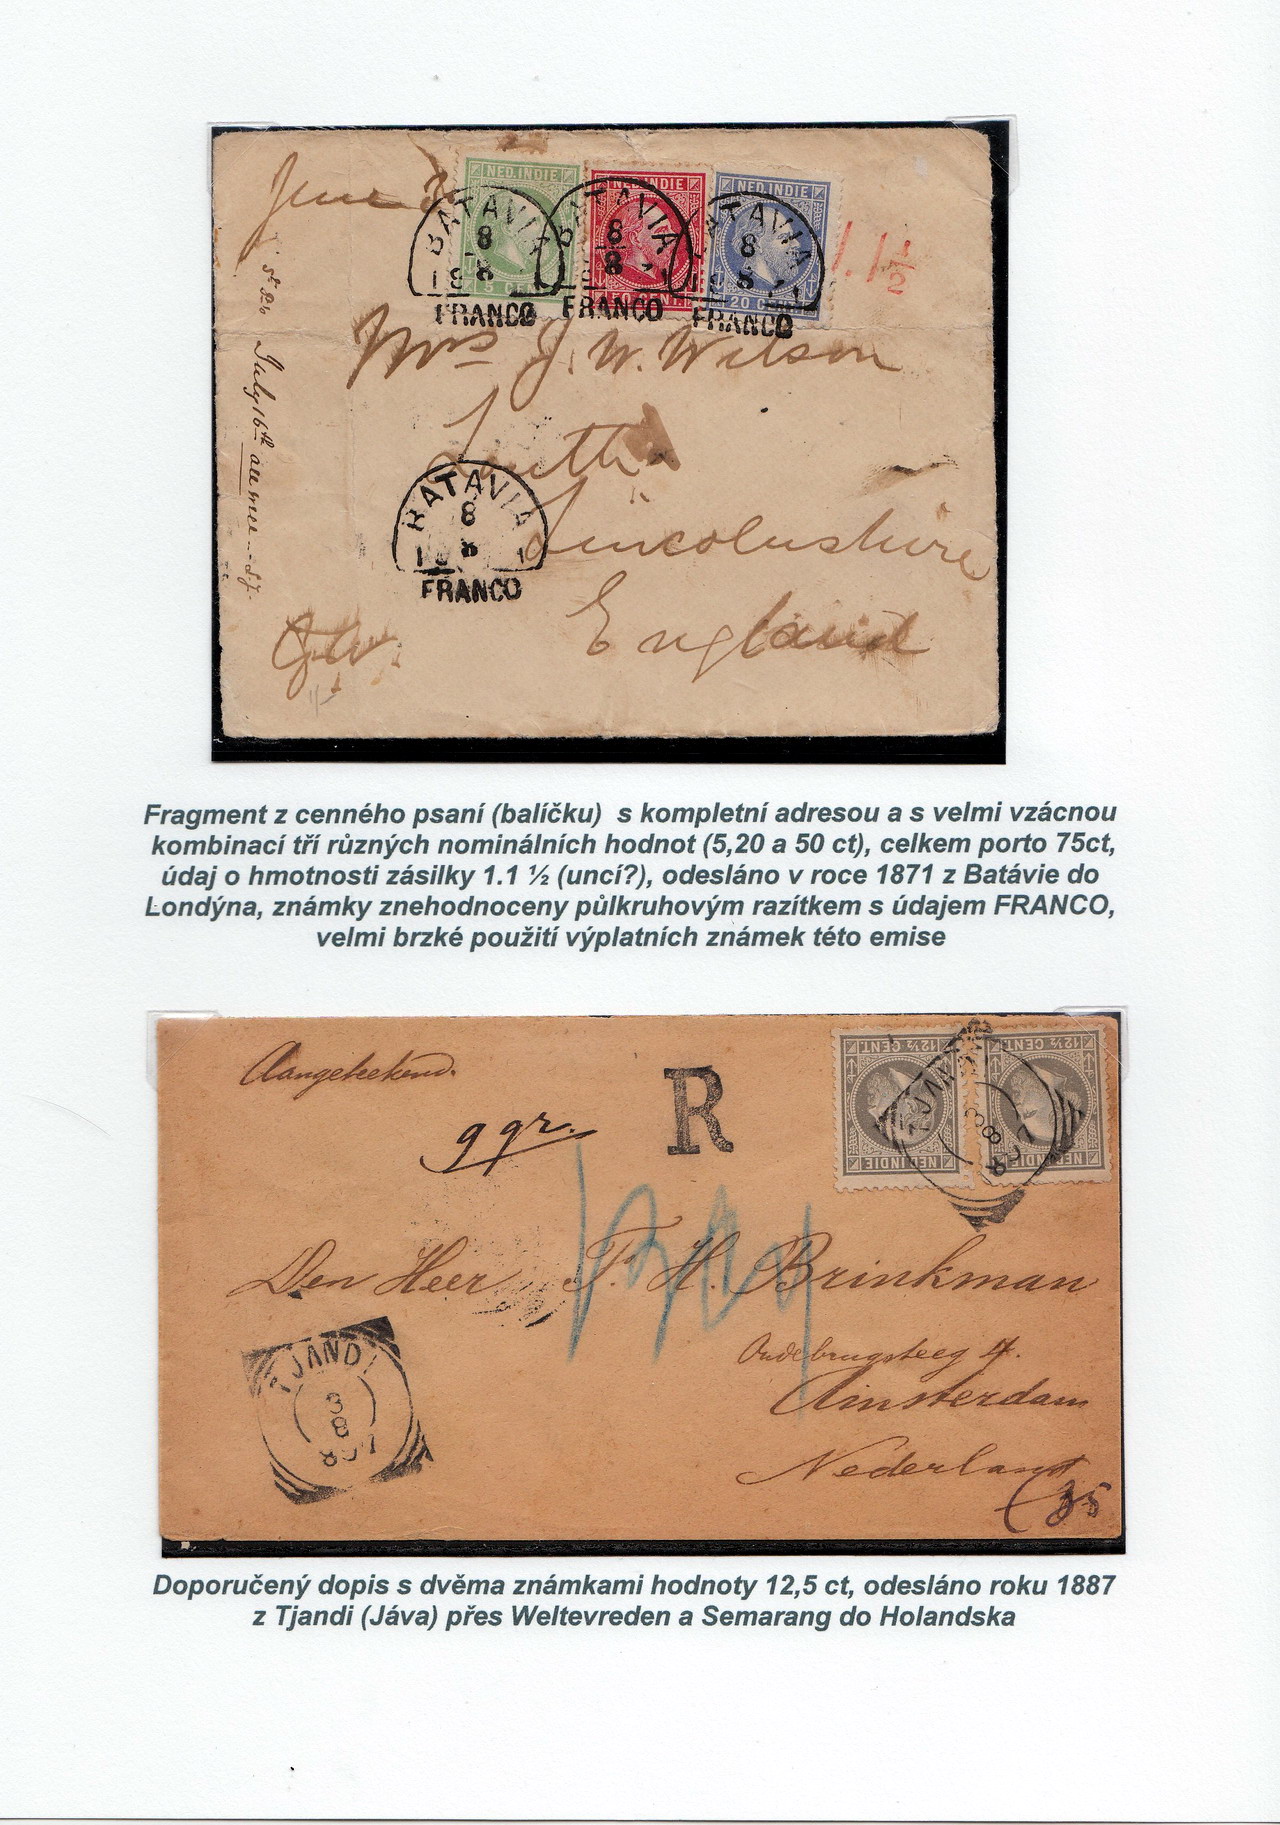 June
NED. INDIE NED. INDIE NED. INDIE
BATAVIA BATAVIA BATAVIA
8 8 8
8 8 8
5 CENT 20 CENT
FRANCO FRANCO FRANCO
1.1½
Mrs J. W. Wilson
Louth
Lincolnshire
England
BATAVIA
8
8
FRANCO
July 16th
Fragment z cenného psaní (balíčku) s kompletní adresou a s velmi vzácnou
kombinací tří různých nominálních hodnot (5,20 a 50 ct), celkem porto 75ct,
údaj o hmotnosti zásilky 1.1 ½ (uncí?), odesláno v roce 1871 z Batávie do
Londýna, známky znehodnoceny půlkruhovým razítkem s údajem FRANCO,
velmi brzké použití výplatních známek této emise
Aangeteekend.
R
9 gr.
12½ CENT. 12½ CENT.
NED. INDIE NED. INDIE
TJANDI
Den Heer F. H. Brinkman
Oudebrugsteeg 4.
Amsterdam
Nederland
TJANDI
3
8
897
Doporučený dopis s dvěma známkami hodnoty 12,5 ct, odesláno roku 1887
z Tjandi (Jáva) přes Weltevreden a Semarang do Holandska